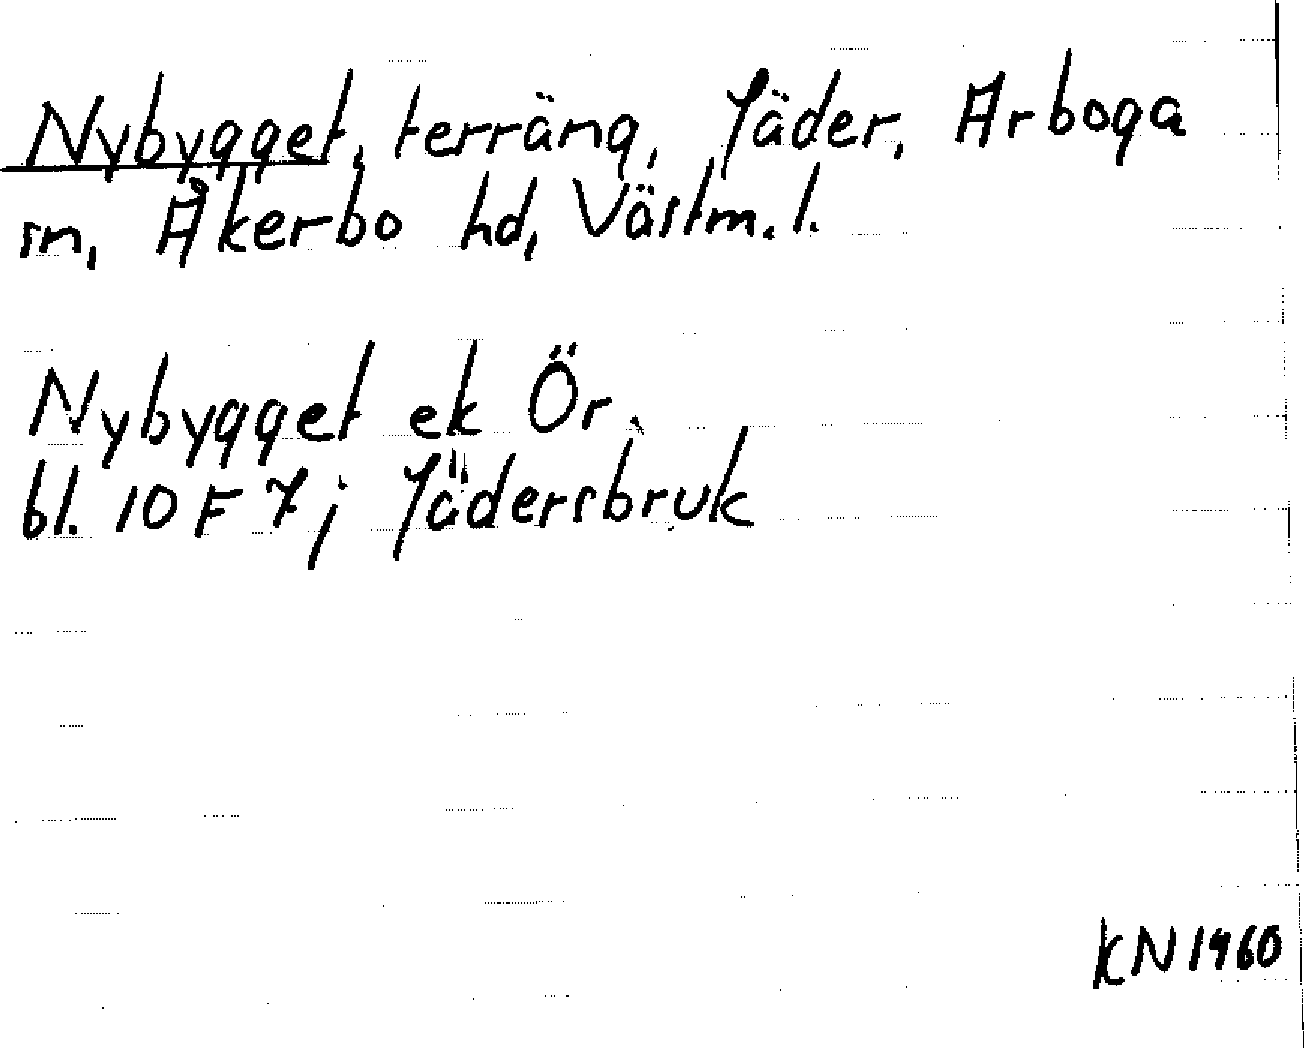 Nybygget, terräng, Jäder, Arboga
sn, Åkerbo hd, Västm. l.
Nybygget ek Ör.
bl. 10 F 7 j Jädersbruk
KN 1960